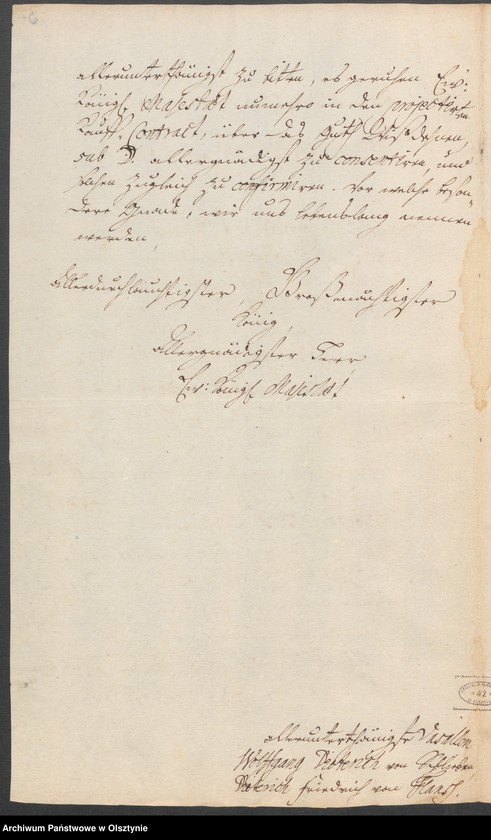 6
allerunterthänigst zu bitten, es geruhen Ew:
Königl. Majestät nunmehro in den projectirten
Kauff-Contract, über das Guth
sub D. allergnädigst zu consentiren, und
solchen zugleich zu confirmiren. Vor welche beson
dere Gnade, wir uns lebenslang nennen
werden,
Allerdurchlauchtigster, Großmächtigster
König,
Allergnädigster Herr,
Ew: Königl. Majestät
42
allerunterthänigste Vasallen
Wolffgang Dieterich von
Dieterich Friedrich von
Archiwum Państwowe w Olsztynie